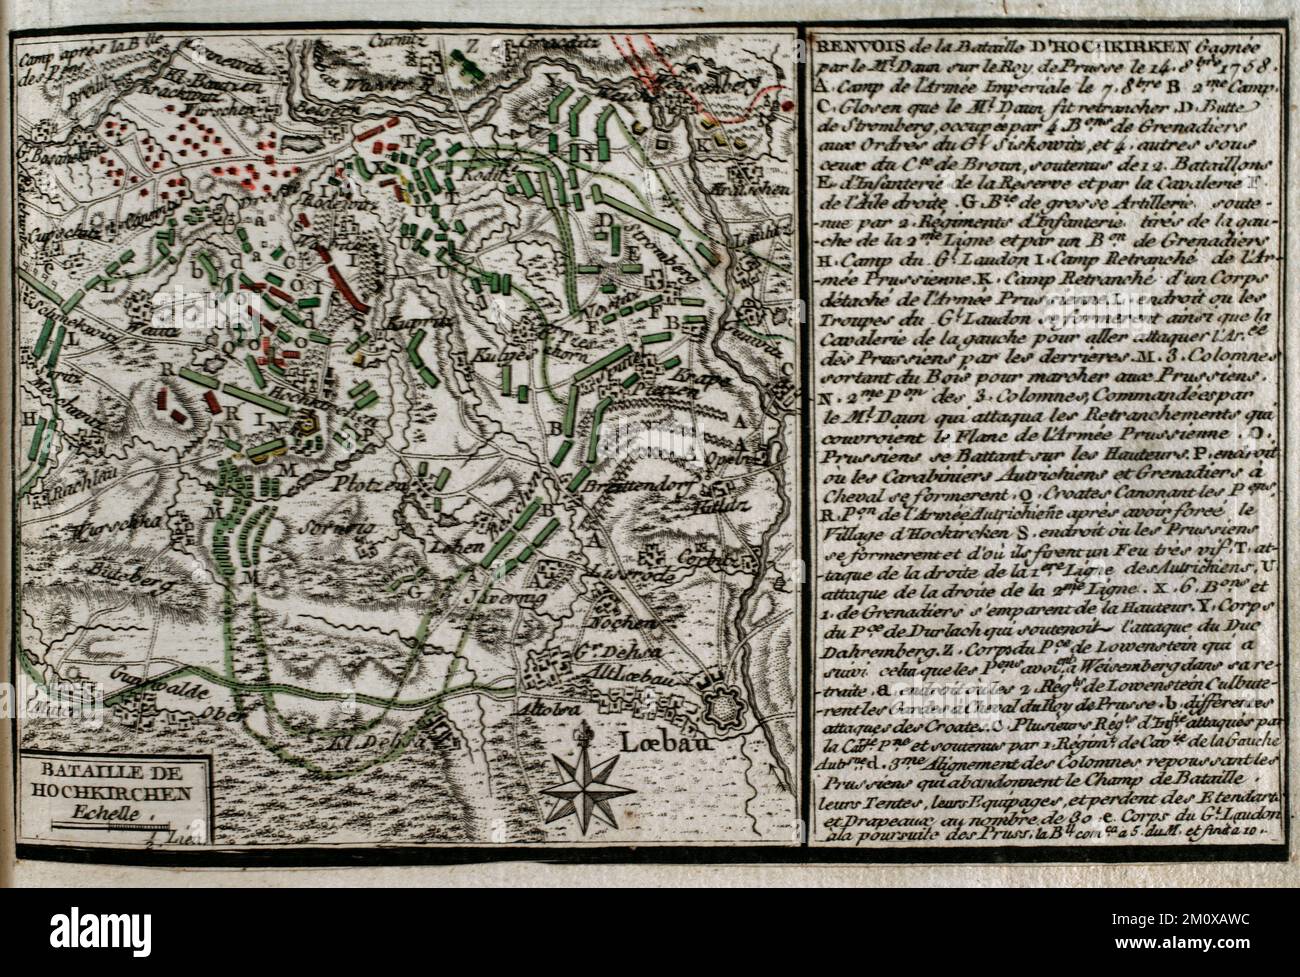 Camp après la B.lle
des P.ns
Cannewitz
Kl. Bautzen
Krackwitz
Wurschen
Curnitz
Z
Groeditz
Wasser R.
Belgern
Weissenberg
K
Kodütz
Stromberg
Nostitz
Kuprütz
Wautz
Schmekwitz
Hochkirchen
Rachlau
Plotzen
Sornzig
Wurschka
Büteberg
Lehen
Breütendorf
Kitlitz
Lissroda
Javernig
Nochen
Gr. Dehsa
Alt Loebau
Altolsa
Gunswalde
Ober
Kl. Dehsa
Lœbau
BATAILLE DE
HOCHKIRCHEN
Echelle.
2 Lieu
RENVOIS de la Bataille D'HOCHKIRKEN Gagnée
par le M.al Daun sur le Roy de Prusse le 14. 8.bre 1758.
A. Camp de l'Armée Imperiale le 7. 8bre B 2me Camp.
C. Glosen que le M.al Daun fit retrancher. D. Butte
de Stromberg, occupée par 4 B.ons de Grenadiers
aux Ordres du G.al Siskowitz, et 4 autres sous
ceux du C.te de Broun, soutenus de 12. Bataillons
E. d'Infanterie de la Reserve et par la Cavalerie F.
de l'Aile droite. G. B.te de grosse Artillerie soute-
nue par 2 Régiments d'Infanterie tirés de la gau-
che de la 2me Ligne et par un B.on de Grenadiers
H. Camp du G.al Laudon I. Camp Retranché de l'Ar-
mée Prussienne. K. Camp Retranché d'un Corps
détaché de l'Armée Prussienne. L. endroit ou les
Troupes du G.al Laudon se formerent ainsi que la
Cavalerie de la gauche pour aller attaquer l'Ar.ée
des Prussiens par les derrieres. M. 3. Colomnes
sortant du Bois pour marcher aux Prussiens.
N. 2me P.on des 3. Colomnes, Commandées par
le M.al Daun qui attaqua les Retranchements qui
couvroient le Flanc de l'Armée Prussienne. O.
Prussiens se Battant sur les Hauteurs. P. endroit
ou les Carabiniers Autrichiens et Grenadiers à
Cheval se formerent. Q. Croates Canonant les P.ens
R. P.on de l'Armée Autrichiene après avoir forcé le
Village d'Hockircken S. endroit ou les Prussiens
se formerent et d'où ils firent un Feu très vif. T. at-
taque de la droite de la 1ere Ligne des Autrichiens. U.
attaque de la droite de la 2me Ligne. X. 6. B.ons et
1. de Grenadiers s'emparent de la Hauteur. Y. Corps
du P.ce de Durlach qui soutenoit l'attaque du Duc
Dahremberg. Z. Corps du P.ce de Lowenstein qui a
suivi celui que les P.ens avoi.nt à Weisemberg dans sa re-
traite. a. endroit ou les 2. Rég.ts de Lowenstein Culbute-
rent les Gardes à Cheval du Roy de Prusse. b. différences
attaques des Croates. C. Plusieurs Rég.ts d'Inf.ie attaqués par
la Cav.ie P.ne et soutenus par 1. Régim.t de Cav.ie de la Gauche
Autr.ne d. 3me Alignement des Colomnes repoussant les
Prussiens qui abandonnent le Champ de Bataille
leurs Tentes, leurs Equipages, et perdent des Etendart
et Drapeaux au nombre de 30. e. Corps du G.al Laudon
à la poursuite des Pruss. la B.lle com.ca à 5. du M. et finit à 10.
alamy
Image ID: 2M0XAWC
www.alamy.com